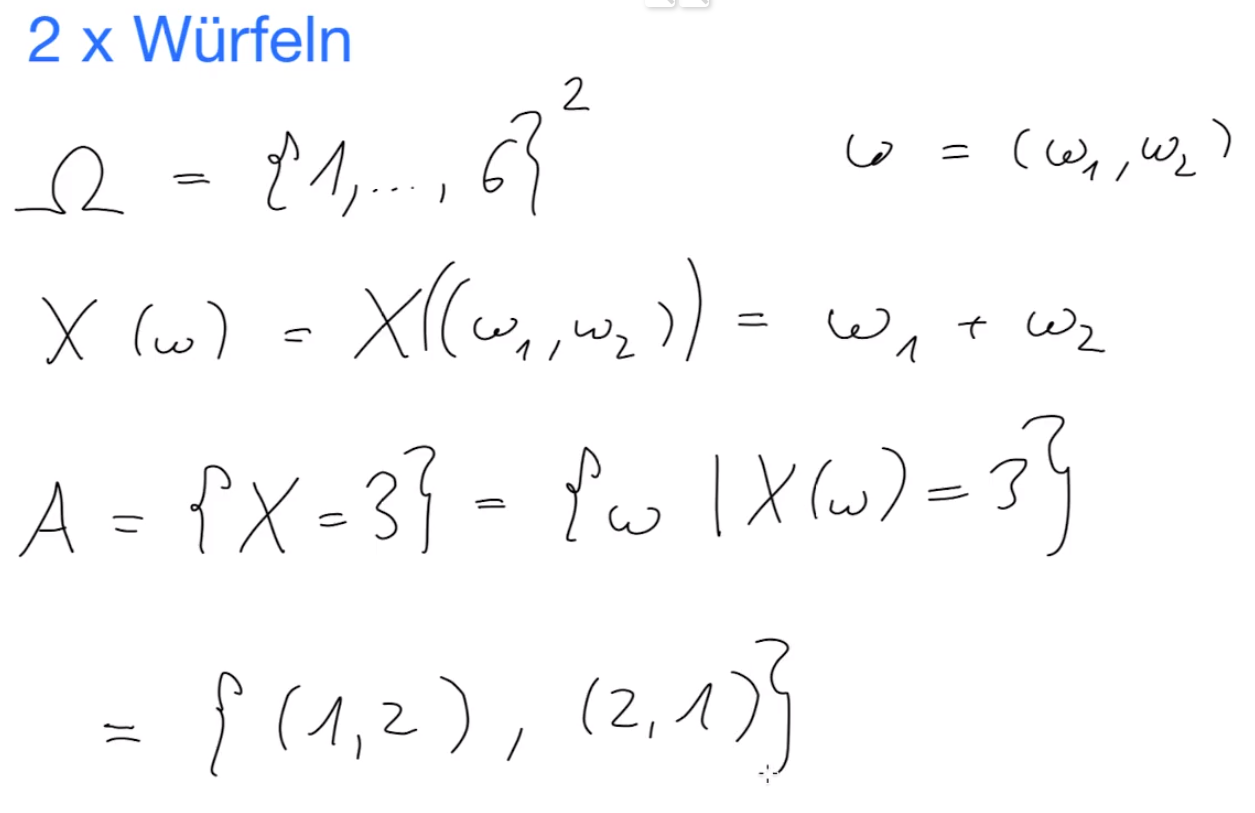 2 x Würfeln
Ω = {1,..., 6}² ω = (ω₁, ω₂)
X (ω) = X((ω₁, ω₂)) = ω₁ + ω₂
A = {X = 3} = {ω | X(ω) = 3}
= {(1,2), (2,1)}